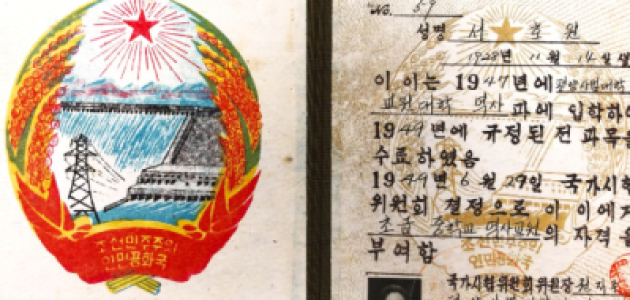 조선민주주의
인민공화국
No. 59
성명 서 호 원
1928년 11월 14일생
이 이는 1947년에 평양사범대학
교원대학 력사 과에 입학하여
1949년에 규정된 전 과목을
수료하였음
1949년 6월 29일 국가시험
위원회 결정으로 이 이에게
초급 중학교 력사교원의 자격을
부여함
조선민주주의
인민공화국
국가시험위원회위원장